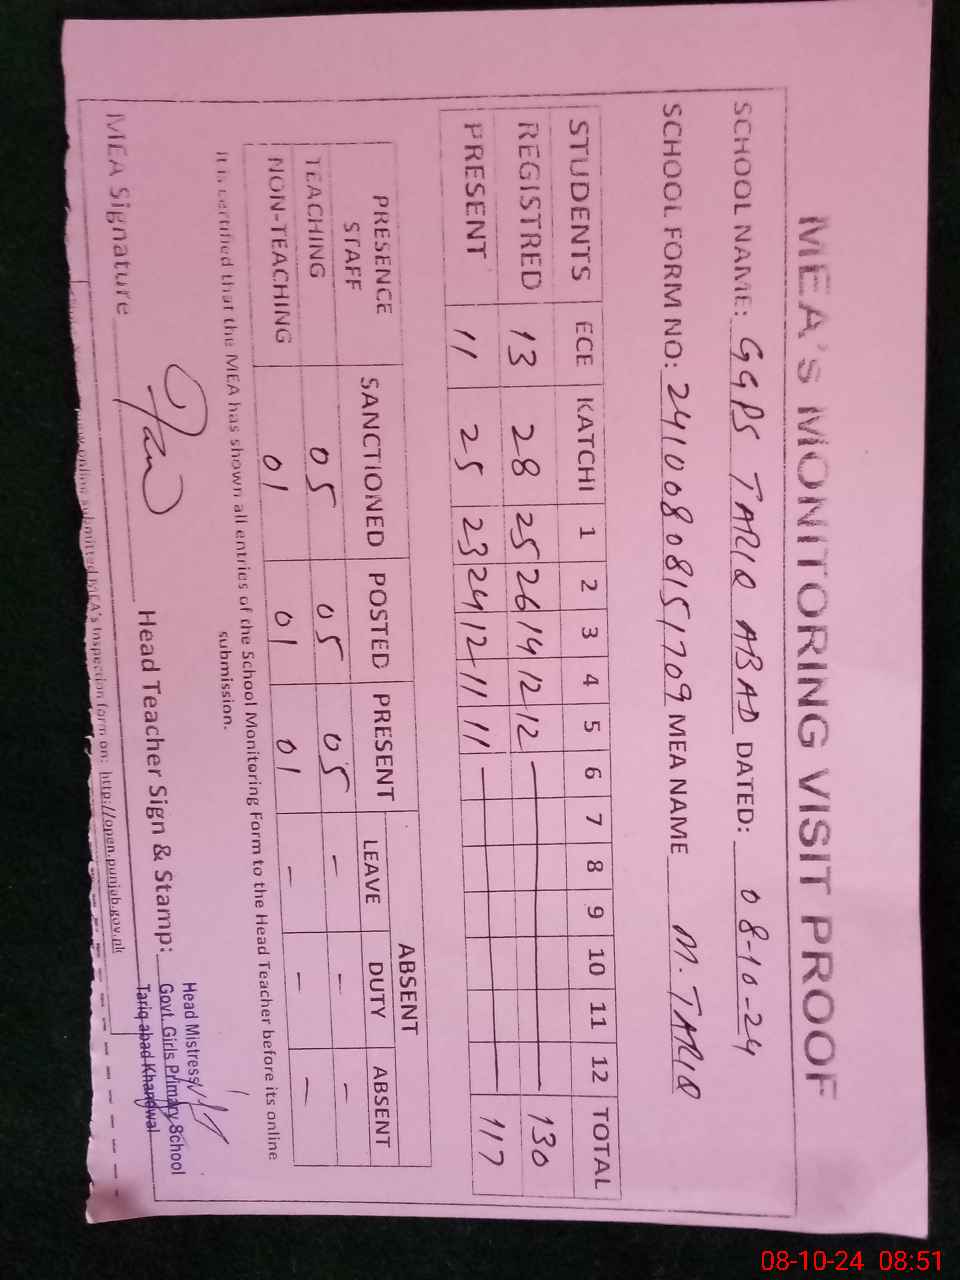 MEA'S MONITORING VISIT PROOF
SCHOOL NAME: GGPS TARIQ ABAD DATED: 08-10-24
SCHOOL FORM NO: 24100808151709 MEA NAME M. TARIQ
STUDENTS ECE KATCHI 1 2 3 4 5 6 7 8 9 10 11 12 TOTAL
REGISTRED 13 28 25 26 14 12 12 — 130
PRESENT 11 25 23 24 12 11 11 — 117
PRESENCE STAFF SANCTIONED POSTED PRESENT ABSENT
LEAVE DUTY ABSENT
TEACHING 05 05 05 - - -
NON-TEACHING 01 01 01 - - -
It is certified that the MEA has shown all entries of the School Monitoring Form to the Head Teacher before its online
submission.
MEA Signature Head Teacher Sign & Stamp:
Head Mistress
Govt. Girls Primary School
Tariq abad Khanewal
online submitted MEA's Inspection form on: http://open.punjab.gov.pk
08-10-24 08:51